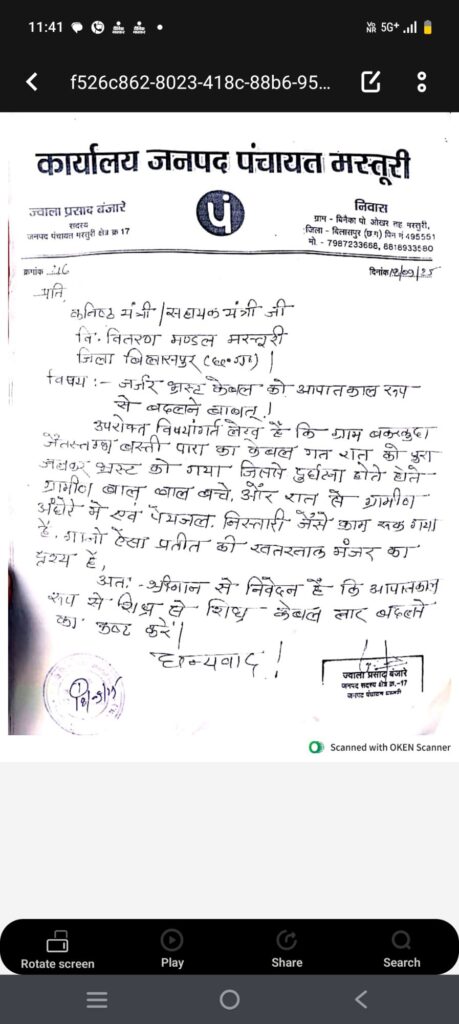 11:41
5G+
f526c862-8023-418c-88b6-95...
कार्यालय जनपद पंचायत मस्तूरी
ज्वाला प्रसाद बंजारे
सदस्य
जनपद पंचायत मस्तुरी क्षेत्र क्र 17
निवास
ग्राम - बिनैका पो ओखर तह मस्तुरी,
जिला - बिलासपुर (छ.ग) पिन नं 495551
मो. - 7987233666, 6818933580
क्रमांक 116
दिनांक 12/09/25
प्रति,
कनिष्ठ यंत्री/सहायक यंत्री जी
वि. वितरण मण्डल मस्तूरी
जिला बिलासपुर (छ.ग.)
विषय :- जर्जर भ्रस्ट केबल को आपातकाल रूप
से बदलने बाबत्.!
उपरोक्त विषयांगर्त लेख है कि ग्राम
जैतस्तम्भ बस्ती पारा का केबल गत रात को पुरा
जलकर भ्रस्ट को गया जिससे दुर्घटना होते होते
ग्रामीण बाल बाल बचे, और रात से ग्रामीण
अंधेरे में एवं पेयजल, निस्तारी जैसे काम रूक गया
है, मानो ऐसा प्रतीत की खतरनाक मंजर का
दृश्य है,
अतः - श्रीमान से निवेदन है कि आपातकाल
रूप से शिघ्र से शिघ्र केबल तार बदलने
का कष्ट करें|
धन्यवाद!
ज्वाला प्रसाद बंजारे
जनपद सदस्य क्षेत्र क्र.-17
जनपद पंचायत मस्तुरी
Scanned with OKEN Scanner
Rotate screen
Play
Share
Search